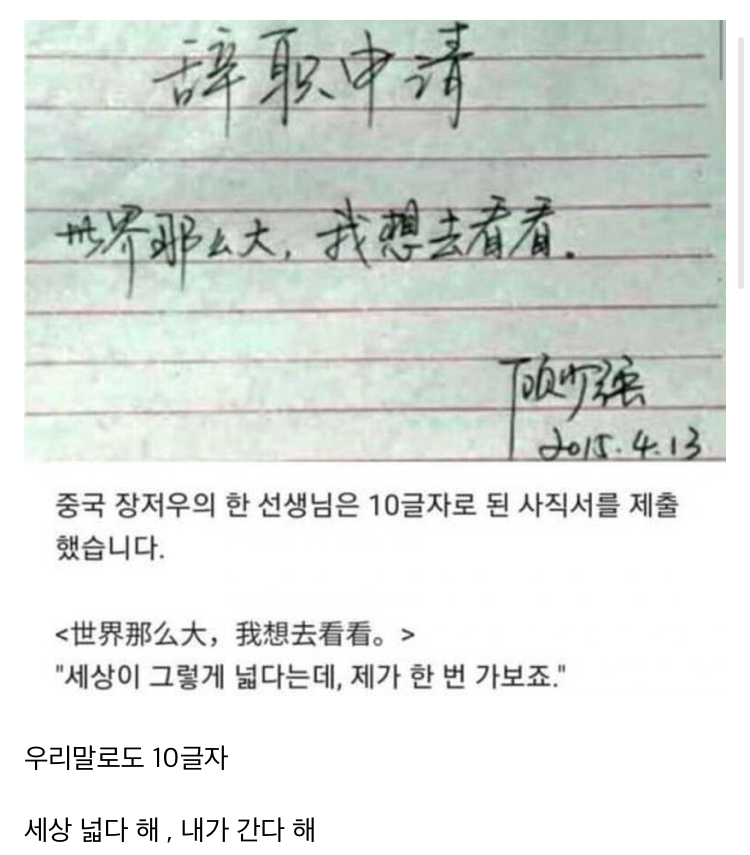 辞职申请
世界那么大，我想去看看.
顾少强
2015.4.13
중국 장저우의 한 선생님은 10글자로 된 사직서를 제출
했습니다.
<世界那么大，我想去看看。>
"세상이 그렇게 넓다는데, 제가 한 번 가보죠."
우리말로도 10글자
세상 넓다 해 , 내가 간다 해